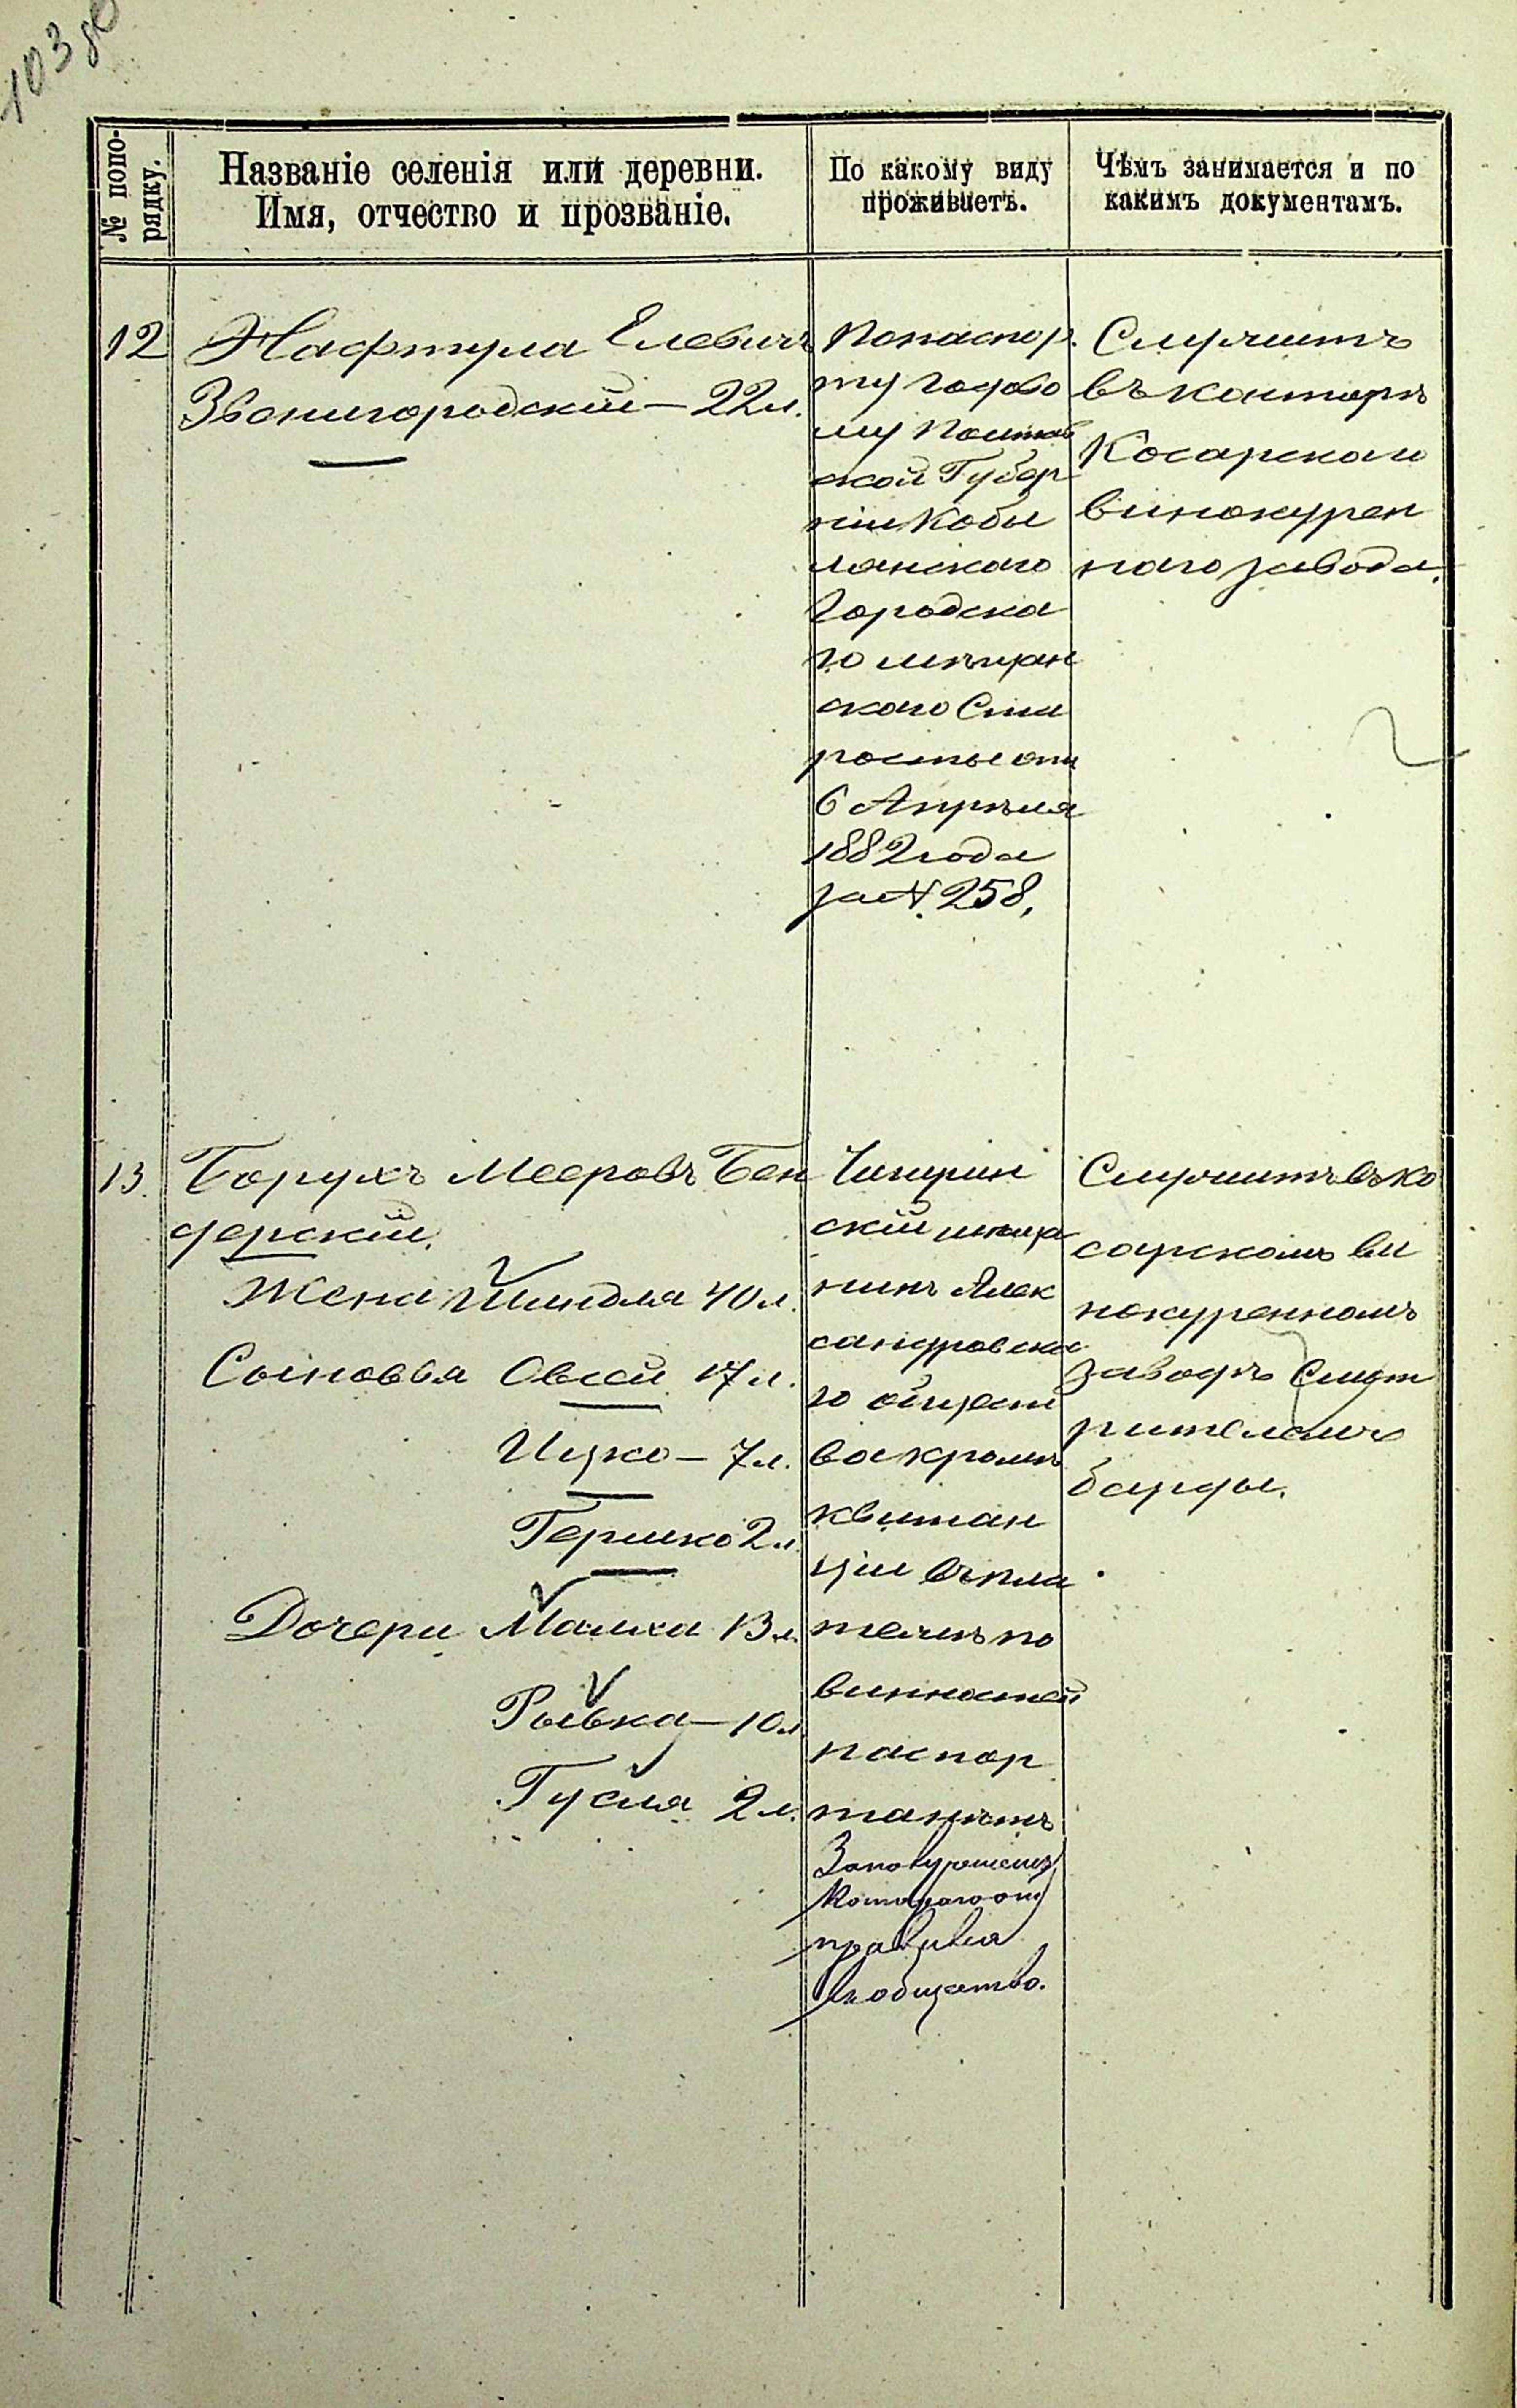 103 об
№ попо-
рядку.
Названіе селенія или деревни.
Имя, отчество и прозваніе.
По какому виду
проживаетъ.
Чѣмъ занимается и по
какимъ документамъ.
12
Нафтула Елевичъ
Звенигородскій — 22 л.
По паспор
ту годово
му Полтав
ской Губер
ніи Кобы
лянскаго
Городска
го мѣщан
скаго Ста
росты отъ
6 Апрѣля
1882 года
за №. 258,
Служитъ
въ конторѣ
Косарскаго
винокурен
наго завода.
13.
Борухъ Мееровъ Бен
дерскій.
Жена Шиндля 40 л.
Сыновья Овсей 17 л.
Ицко — 7 л.
Гершко 2 л.
Дочери Малка 13 л.
Рывка — 10 л.
Гусля 2 л.
Чигирин
скій мѣща
нинъ Алек
сандровска
го общест
ва кромѣ
квитан
ціи въ пла
тежѣ по
винностей
паспор
та нѣтъ
которого от
правился
въ общество.
Служитъ въ Ко
сарскомъ ви
нокуренномъ
заводѣ Смот
рителемъ
барды.